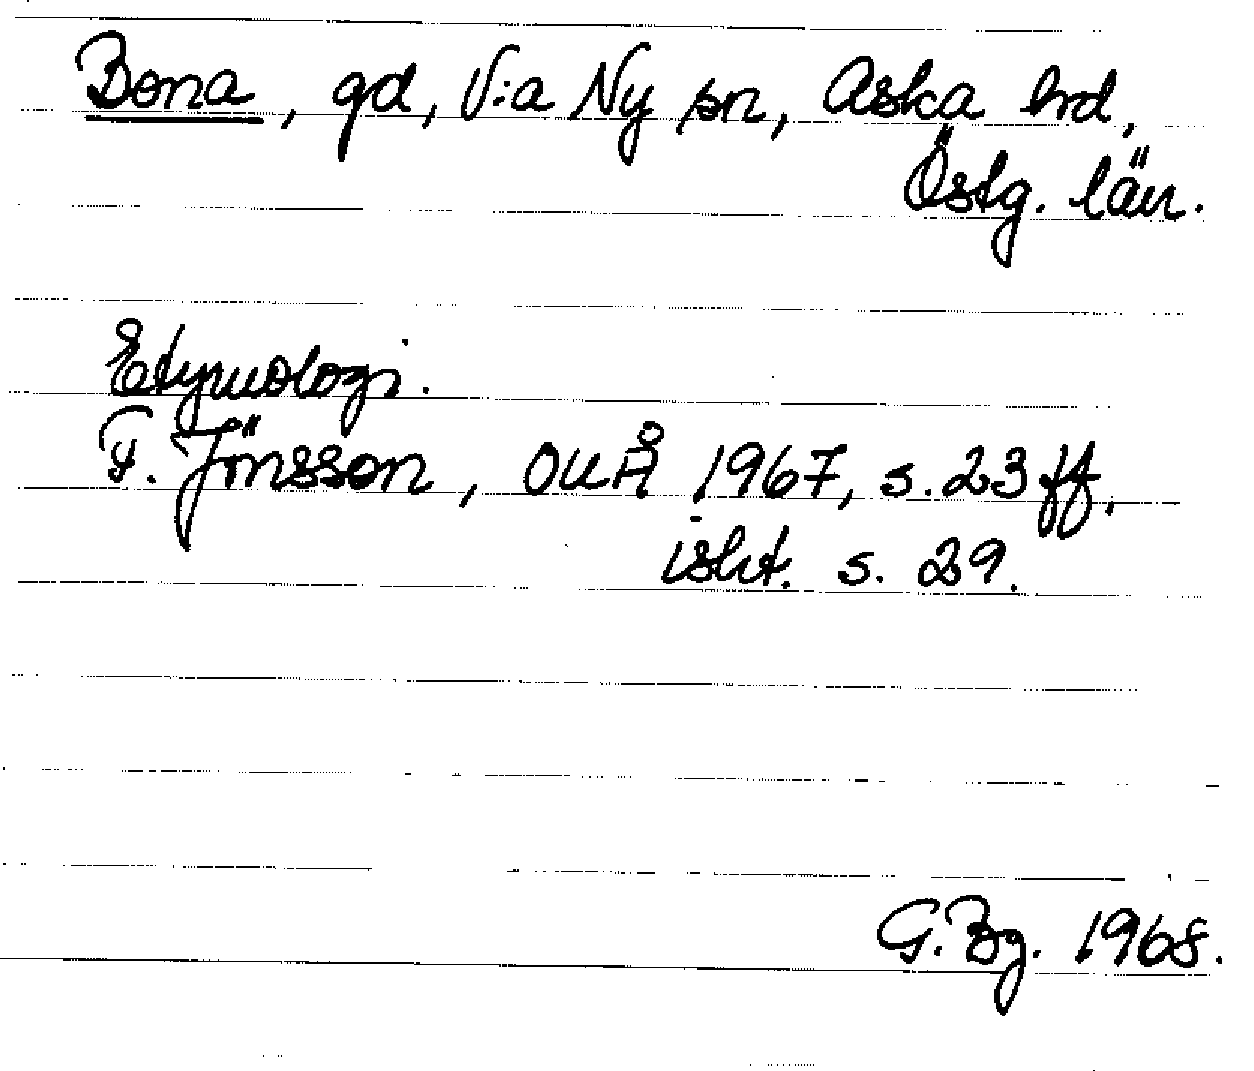 Bona, gd, V:a Ny sn, Aska hrd,
Östg. län.
Etymologi.
F. Jönsson, OUÅ 1967, s. 23 ff,
isht. s. 29.
G. Bg. 1968.